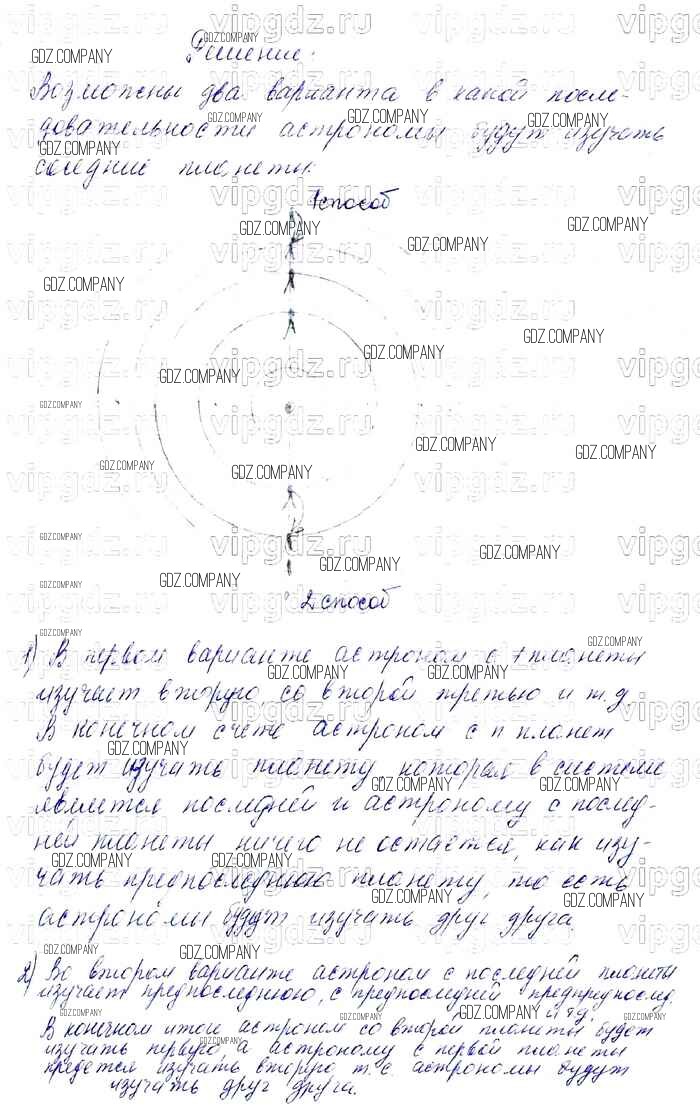 Решение:
Возможны два варианта в какой после-
довательности астрономы будут изучать
соседние планеты.
1 способ
2 способ
1) В первом варианте астроном с 1 планеты
изучает вторую, со второй третью и т.д.
В конечном счете астроном с n планет
будет изучать планету, которая в системе
является последней и астроному с послед-
ней планеты ничего не остается, как изу-
чать предпоследнюю планету, то есть
астрономы будут изучать друг друга.
2) Во втором варианте астроном с последней планеты
изучает предпоследнюю, с предпоследней предпредпослед.
и т.д.
В конечном итоге астроном со второй планеты будет
изучать первую, а астроному с первой планеты
придется изучать вторую т.е. астрономы будут
изучать друг друга.
vipgdz.ru
GDZ.COMPANY